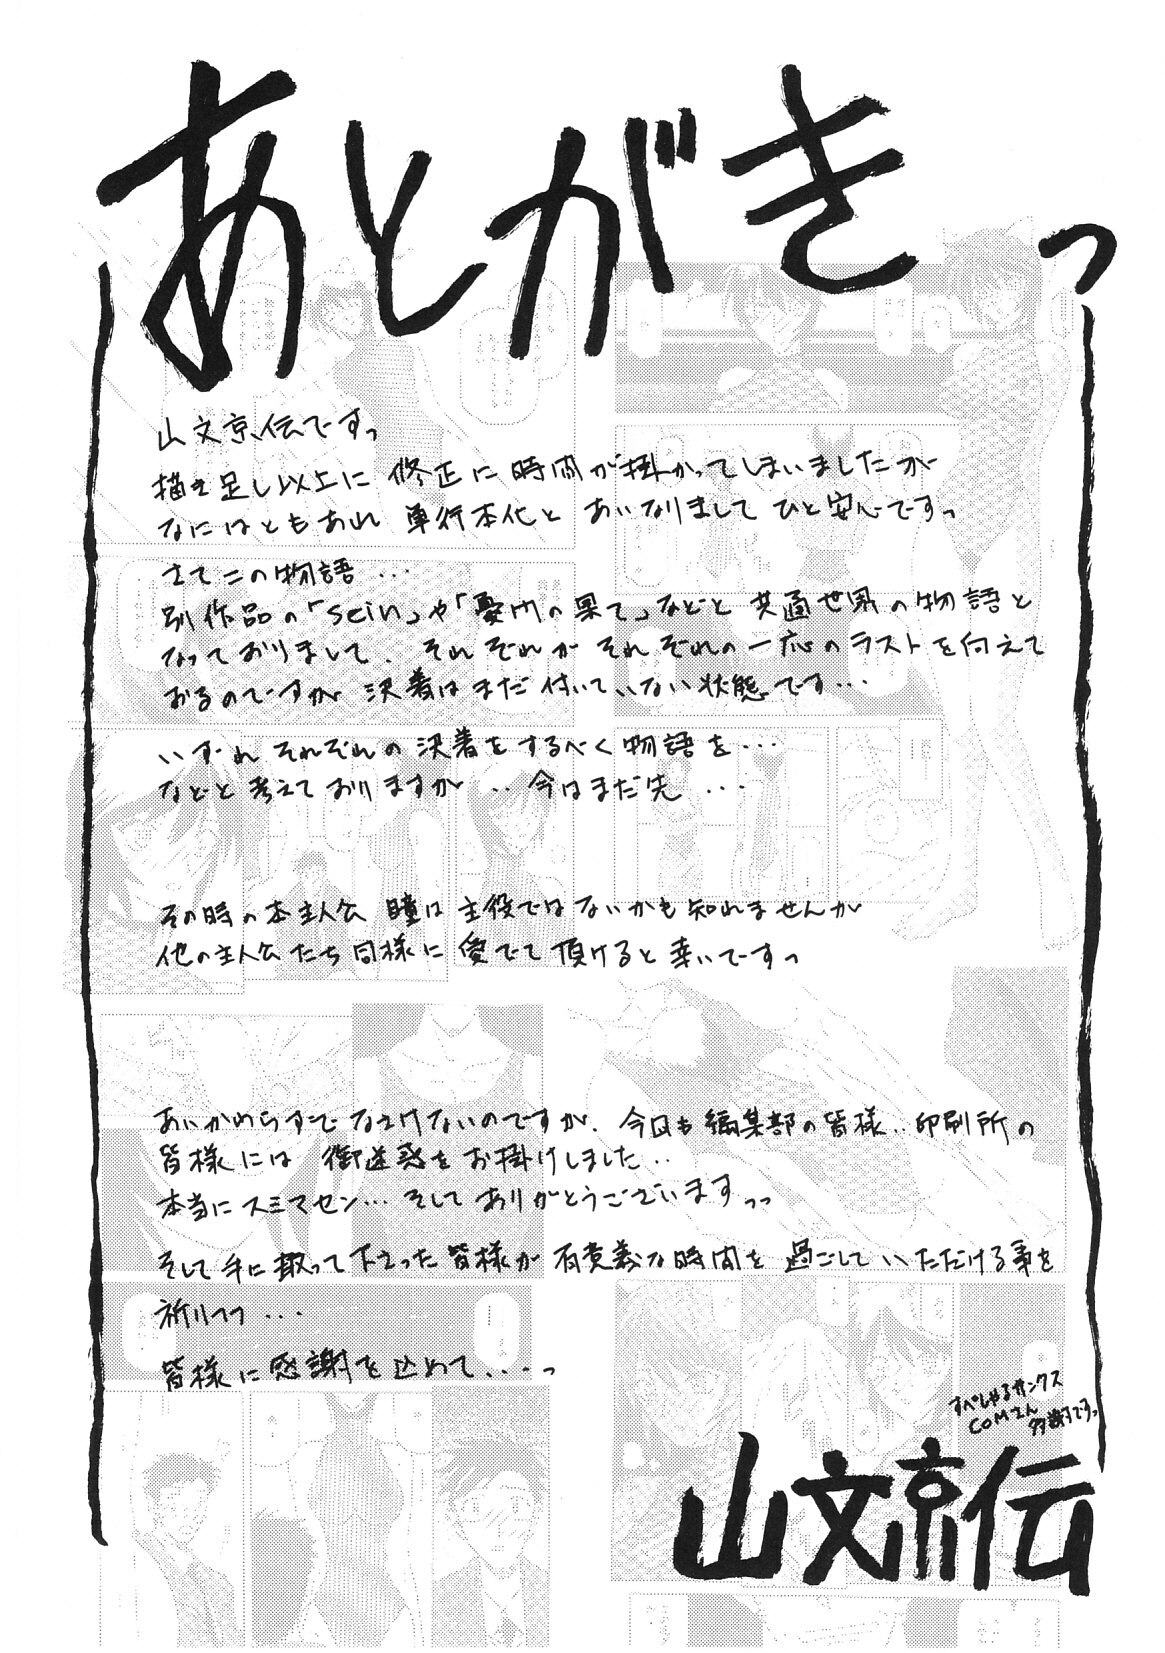 あとがきっ
山文京伝ですっ
描き足し以上に 修正に時間が掛かってしまいましたが
なにはともあれ 単行本化と あいなりまして ひと安心ですっ
さてこの物語・・・
別作品の「Sein」や「憂内の果て」などと 共通世界の物語と
なっておりまして、それぞれが それぞれの一応のラストを向えて
おるのですが 決着はまだ付いていない状態です・・・
いずれ それぞれの決着をするべく物語を・・・
などと考えておりますが・・今はまだ先・・・
その時の本主人公 瞳は主役ではないかも知れませんが
他の主人公たち同様に愛でて頂けると幸いですっ
あいかわらずで なさけないのですが、今回も編集部の皆様・・印刷所の
皆様には 御迷惑をお掛けしました・・
本当にスミマセン・・・そして ありがとうございますっっ
そして手に取って下さった皆様が 有意義な時間を 過ごして いただける事を
祈りつつ・・・
皆様に感謝を込めて・・・っ
すぺしゃるサンクス
COMさん 多謝ですっ
山文京伝